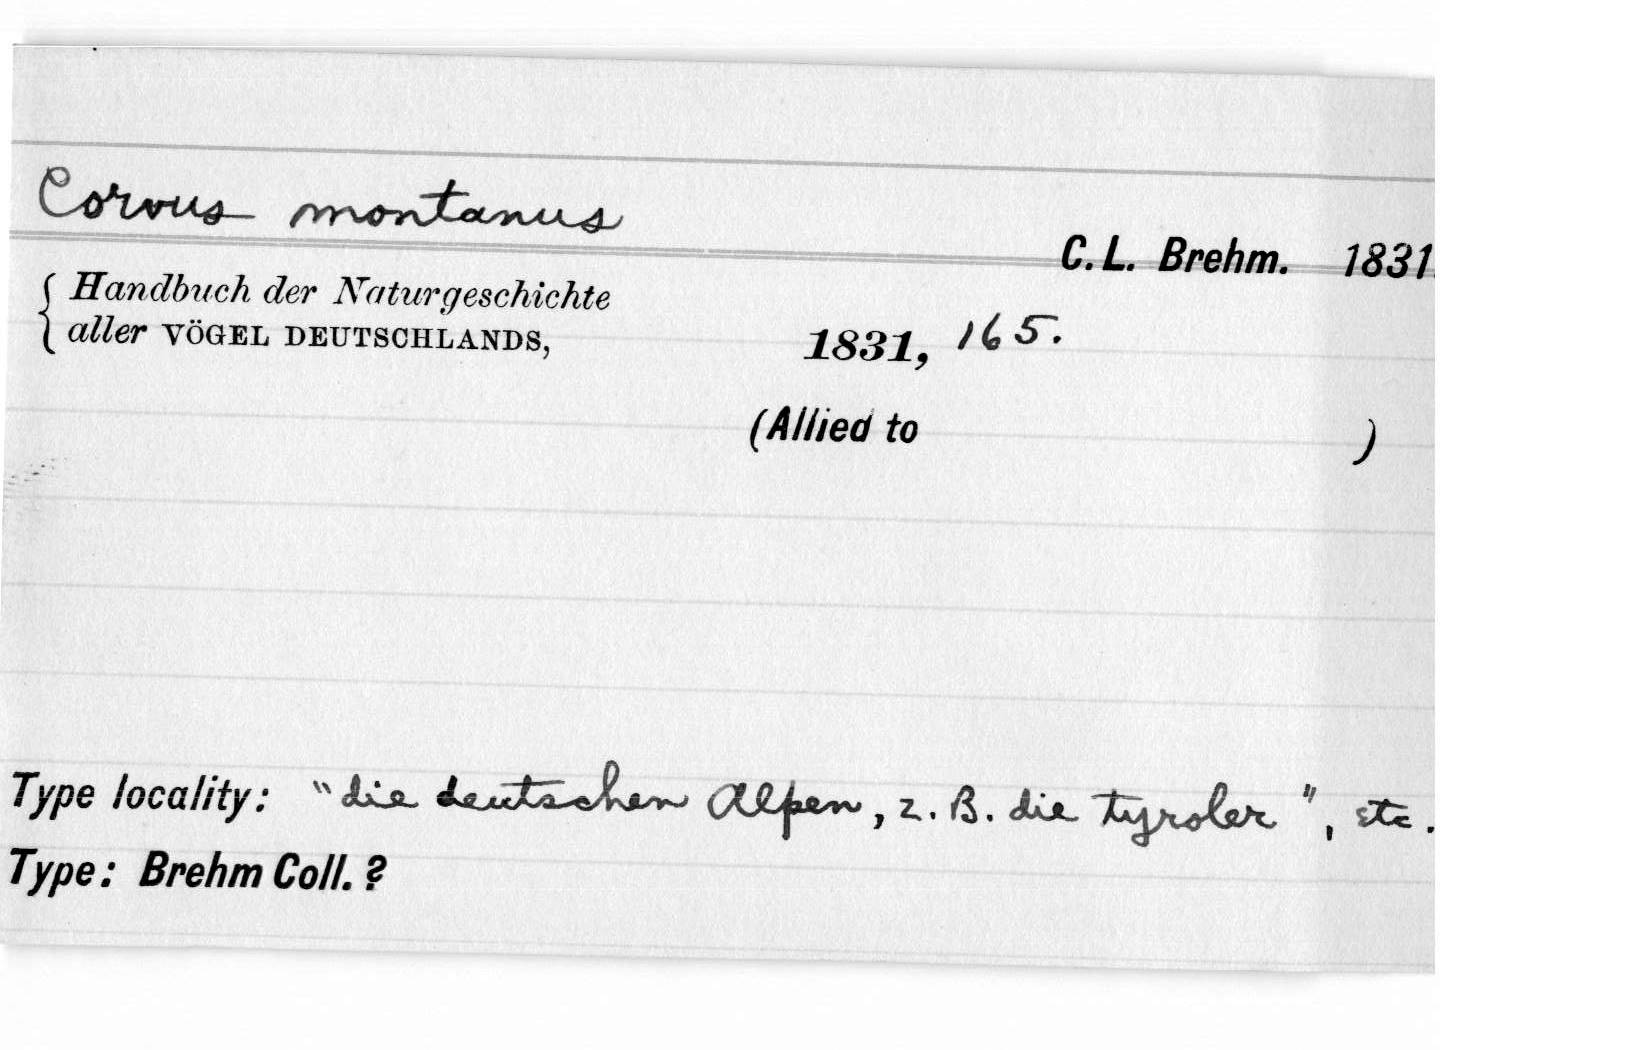 Corvus montanus
C. L. Brehm. 1831.
Handbuch der Naturgeschichte
aller VÖGEL DEUTSCHLANDS, 1831, 165.
(Allied to )
Type locality: "die deutschen Alpen, z. B. die tyroler", etc.
Type: Brehm Coll. ?